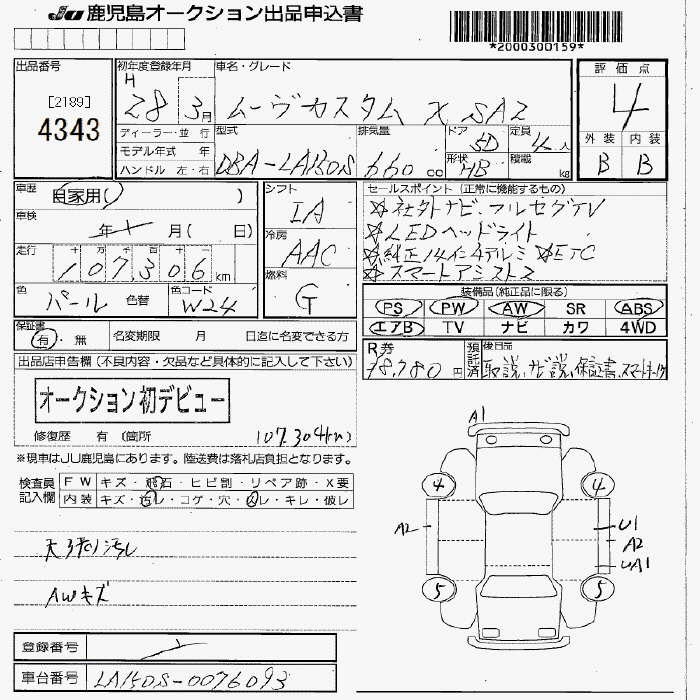 JU 鹿児島オークション出品申込書
*2000300159*
出品番号
[2189]
4343
初年度登録年月
H 28 3月
車名・グレード
ムーヴカスタム X SA2
評価点
4
外装 内装
B B
ディーラー・並行
モデル年式 年
ハンドル 左・右
型式
DBA-LA150S
排気量
660 cc
ドア
5D
定員
4人
形状
HB
積載
kg
車歴
自家用( )
車検
年 月( 日)
走行
十 万 千 百 十
107,306 km
色
パール
色替
色コード
W24
シフト
IA
冷房
AAC
燃料
G
セールスポイント(正常に機能するもの)
☆社外ナビ・フルセグTV
☆LEDヘッドライト
☆純正14インチアルミ ☆ETC
☆スマートアシスト2
装備品(純正品に限る)
PS PW AW SR ABS
エアB TV ナビ カワ 4WD
保証書
有・無
名変期限 月 日迄に名変できる方
R券
円
預託済
後日品
取説、ナビ説、保証書、スマートキー
出品店申告欄(不良内容・欠品など具体的に記入して下さい)
オークション初デビュー
修復歴 有(箇所
107,304km)
※現車はJU鹿児島にあります。陸送費は落札店負担となります。
検査員記入欄
FW キズ・飛石・ヒビ割・リペア跡・X要
内装 キズ・汚レ・コゲ・穴・スレ・キレ・破レ
天張り汚レ
AWキズ
A1
4 4
A2
U1
A2
UA1
5 5
登録番号
車台番号
LA150S-0076093